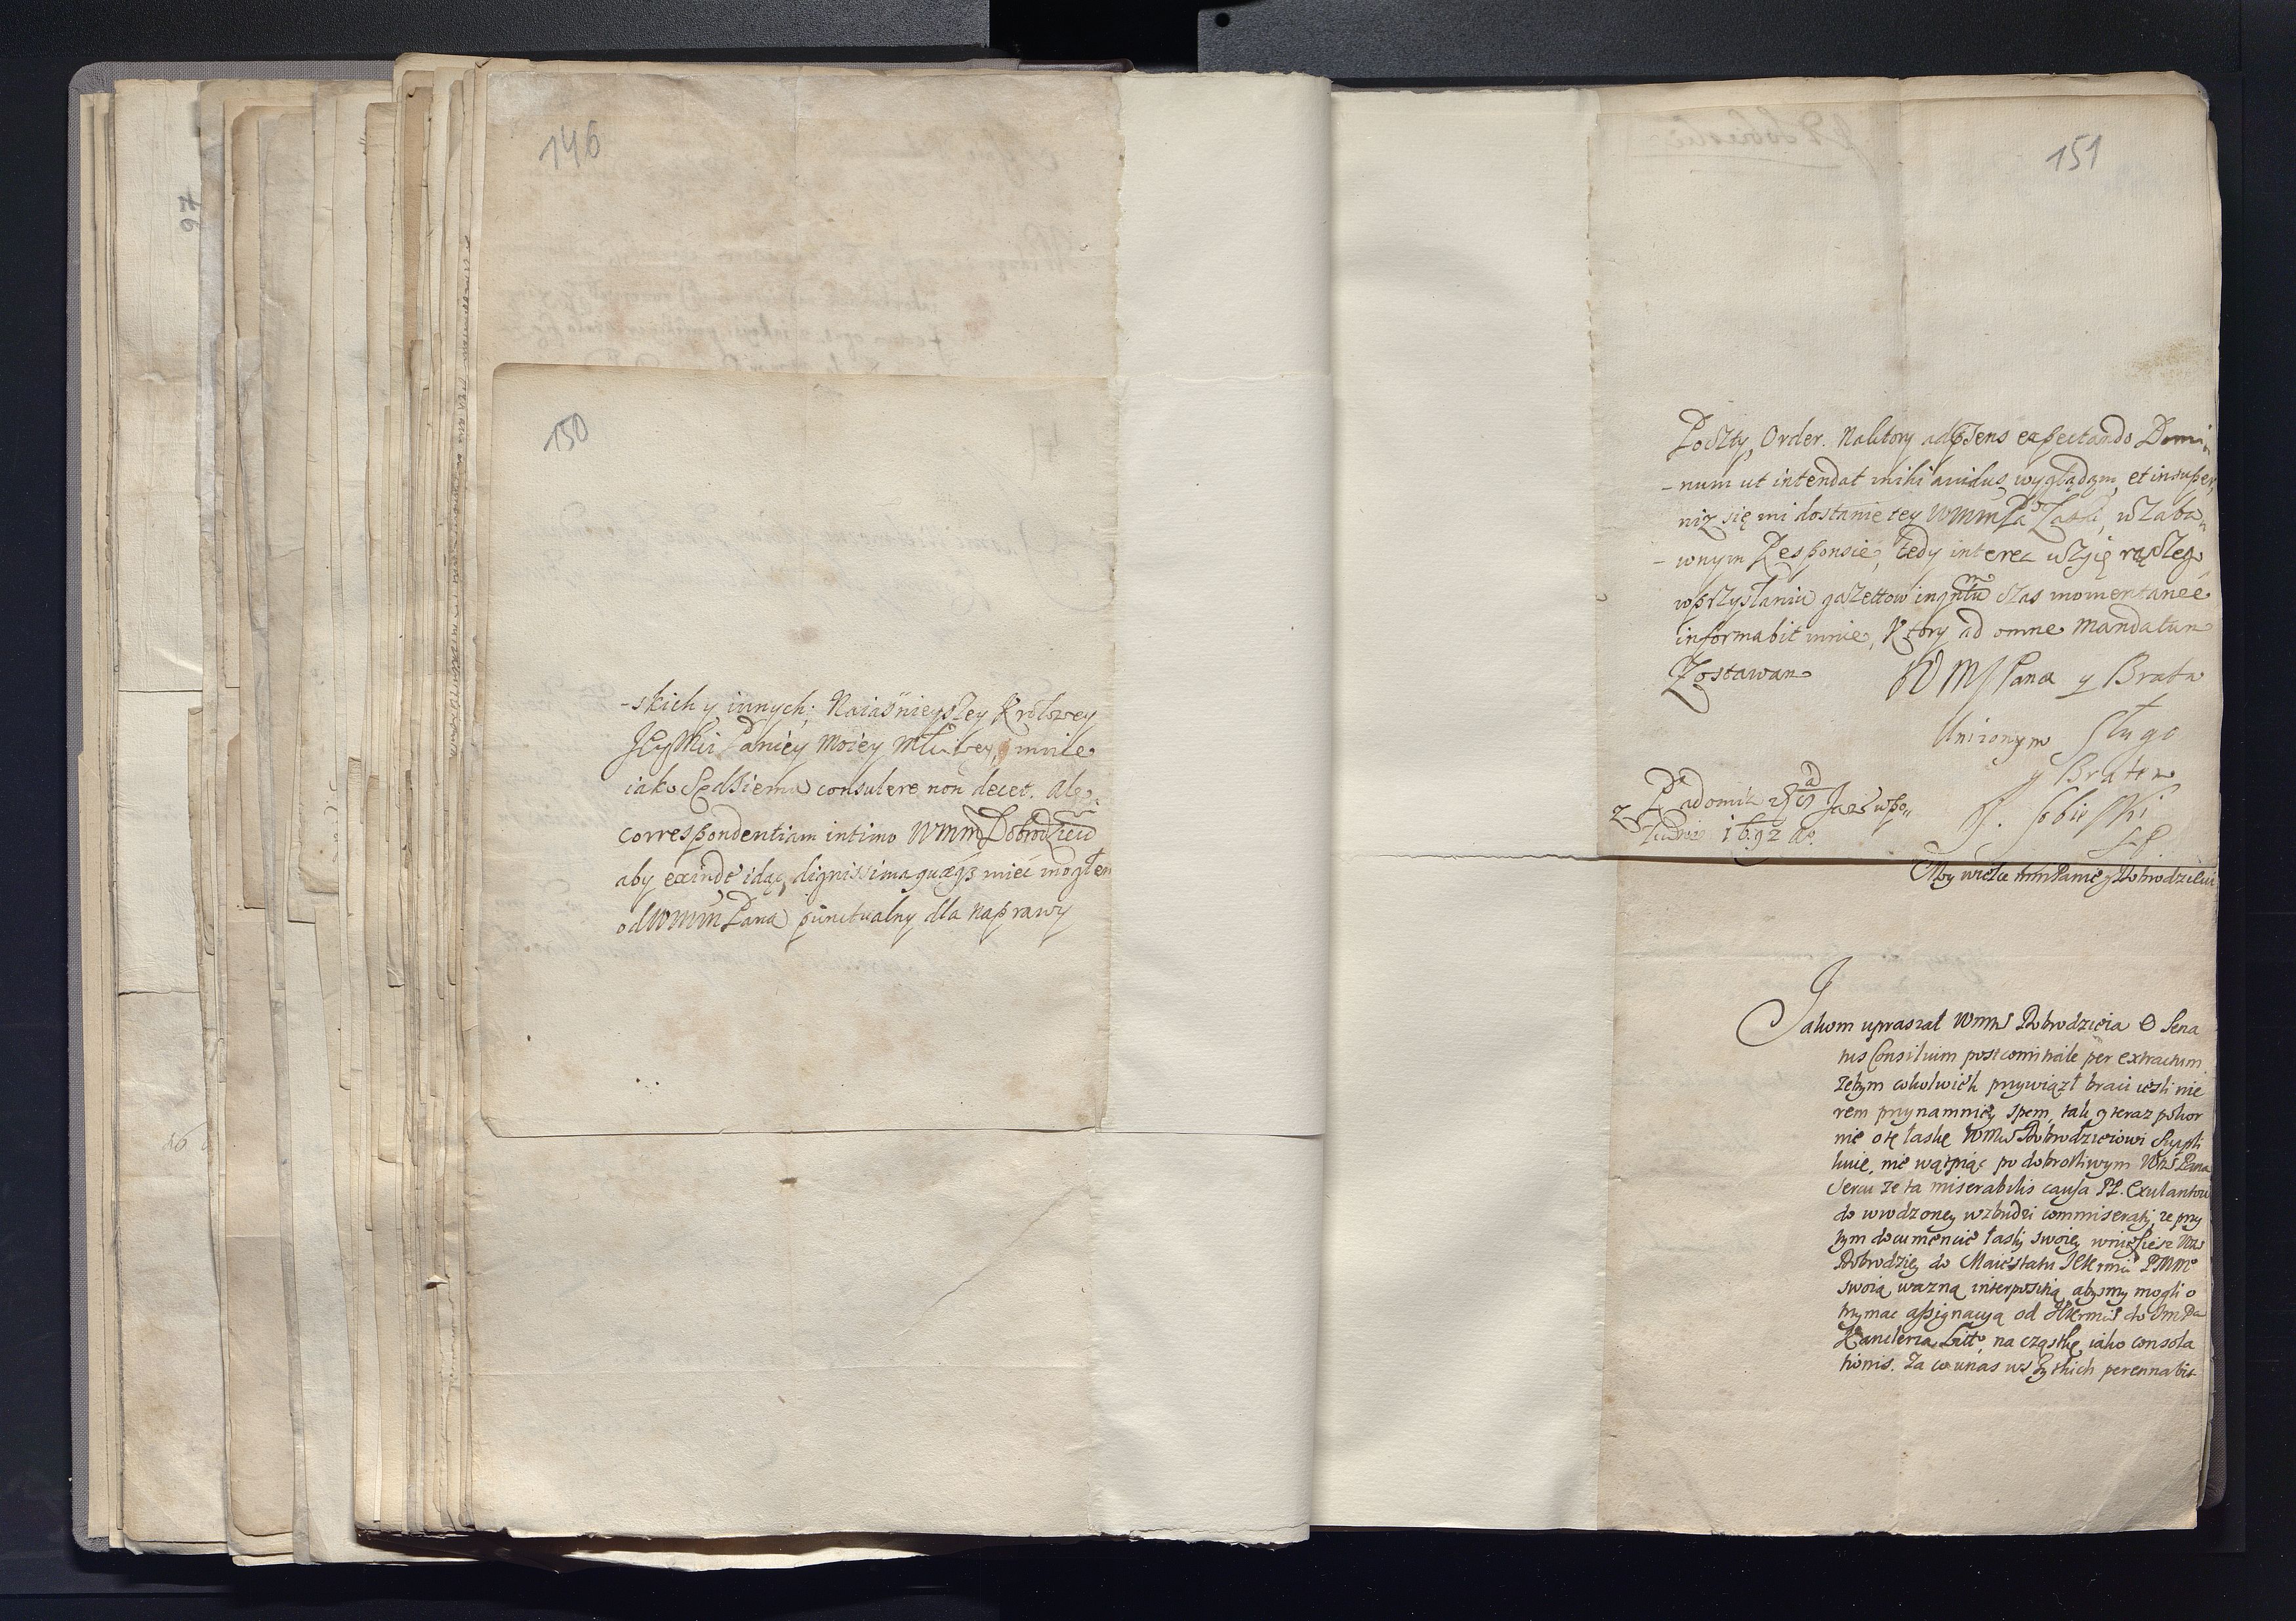 146
150
-skich y innych; Naiaśnieyszey Krolowey
JeyMći Paniey Moiey Młćiwey, mnie
iako Sędziemu consulere non decet. Ale
correspondentiam intimo WMMPDobrodzieiu
aby exinde idąc, dignissima quæq3 mieć mogłem
od WMMPana punctualny dla naprawy
97
151
Poczty Order. Na ktory adpsens expectando Domi-
-num ut intendat mihi avidus wyglądam, et insuper
niz się mi dostanie tey WMMPa Łaski, w
-wnym Responsie, tedy interea
w przysłaniu gazettow in czas momentanee
informabit mnie, Ktory ad omne mandatum
Zostawam WMMPana y Brata
Unizonym Sługą
y Bratem
J. Sobieski
Z Radomia
1692 Ao.
Moy wielce Panie y Dobrodzieiu
Jakom upraszał WMM Dobrodzieia O Sena
tus Consilium postcomitiale per extractum
zebym cokolwiek przywiązł braci iesli nie
rem przynamniey spem, tak y teraz pokor
nie o tę łaskę WMM Dobrodzieiowi Suppli
kuie, nie wątpiąc po dobrotliwym WM Pana
Sercu ze ta miserabilis causa PP. Exulantow
do wrodzoney wzbudzi commiseratij, ze przy
tym documencie łaski swoiey wniesiesz WM
Dobrodziey do Maiestatu JKrmći PMMo
swoią wazną interpositią abysmy mogli o
trzymac assignacyą od JKrmći do JmPa
Kanclerza Litt, na cząstkę iako consola
tionis. Za co unas wszytkich perennabit